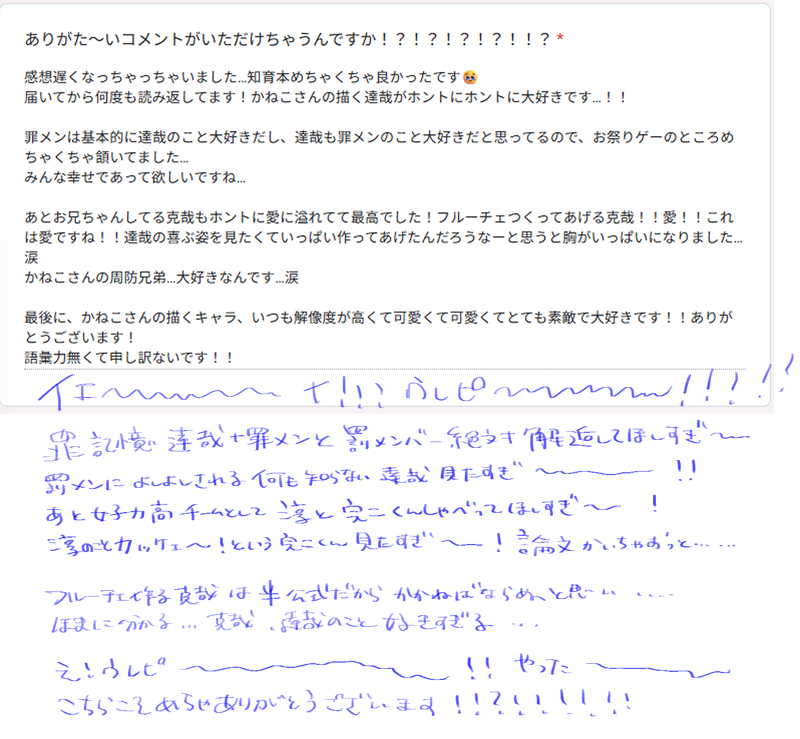 ありがた〜いコメントがいただけちゃうんですか！？！？！？！？！！？ *
感想遅くなっちゃっちゃいました…知育本めちゃくちゃ良かったです🥹
届いてから何度も読み返してます！かねこさんの描く達哉がホントにホントに大好きです…！！
罪メンは基本的に達哉のこと大好きだし、達哉も罪メンのこと大好きだと思ってるので、お祭りゲーのところめ
ちゃくちゃ頷いてました…
みんな幸せであって欲しいですね…
あとお兄ちゃんしてる克哉もホントに愛に溢れてて最高でした！フルーチェつくってあげる克哉！！愛！！これ
は愛ですね！！達哉の喜ぶ姿を見たくていっぱい作ってあげたんだろうなーと思うと胸がいっぱいになりました…
涙
かねこさんの周防兄弟…大好きなんです…涙
最後に、かねこさんの描くキャラ、いつも解像度が高くて可愛くて可愛くてとても素敵で大好きです！！ありが
とうございます！
語彙力無くて申し訳ないです！！
イエ〜〜〜〜〜 ！！！ ウレピ〜〜〜〜〜！！！！！
罪記憶 達哉+罪メンと 罰メンバー 絶対 邂逅してほしすぎ〜
罰メンに よしよしされる 何も知らない 達哉 見たすぎ 〜 ！！
あと女子力高チームとして 淳と 完二くんしゃべってほしすぎ〜 ！
淳のことカッケェ〜！という 完二くん 見たすぎ 〜！論文かいちゃおっと……
フルーチェ作る克哉 は 半公式だから かかねばならぬ、と思い ....
ほまに分かる… 克哉、達哉のこと 好きすぎる …
え！ウレピ 〜 ！！ やった 〜
こちらこそめちゃありがとうございます ！！？！！！！！